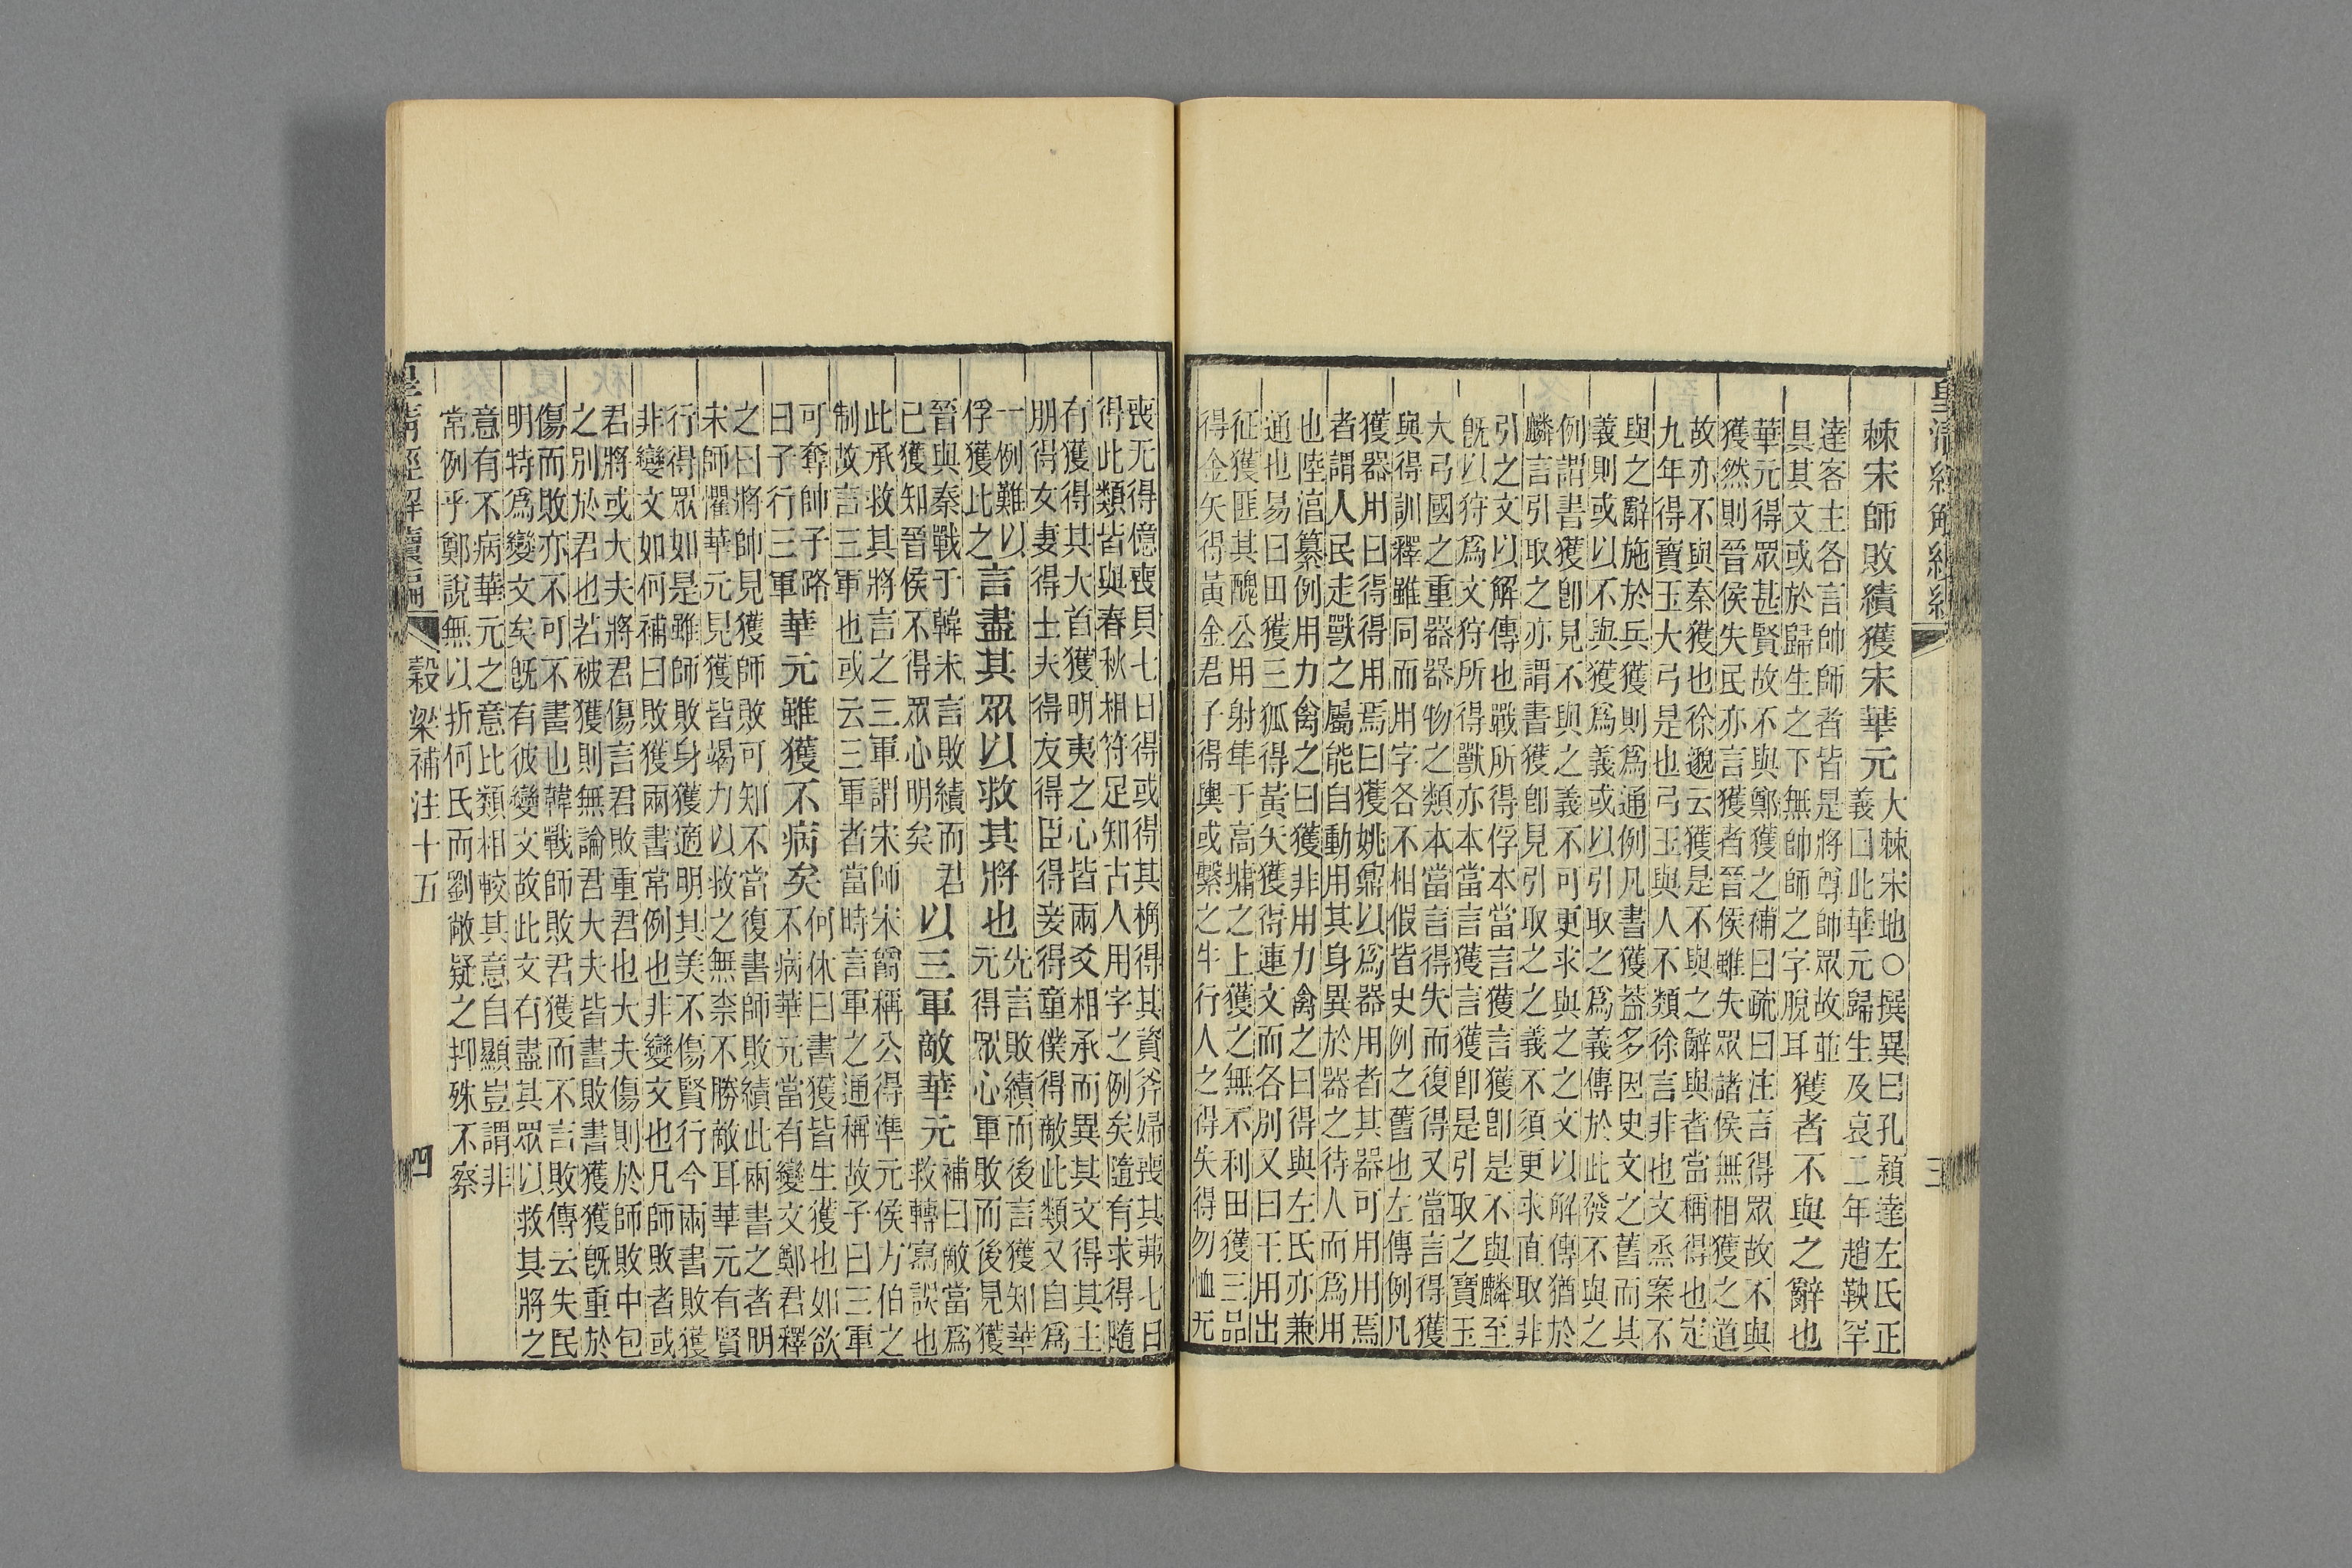 皇清經解續編
三
棘宋師敗績獲宋華元
大棘宋地○撰異曰孔穎達左氏正
義曰此華元歸生及哀二年趙鞅罕
達客主各言帥師者皆是將尊師眾故並
具其文或於歸生之下無帥師之字脫耳
獲者不與之辭也
華元得眾甚賢故不與鄭獲之補曰疏曰注言得眾故不與
獲然則晉侯失民亦言獲者晉侯雖失眾諸侯無相獲之道
故亦不與秦獲也徐邈云獲是不與之辭與者當稱得也定
九年得寶玉大弓是也弓玉與人不類徐言非也文烝案不
與之辭施於兵獲則爲通例凡書獲葢多因史文之舊而其
義則或以不與獲爲義或以引取之爲義傳於此發不與之
例謂書獲卽見不與之義不可更求與之之文以解傳猶於
麟言引取之亦謂書獲卽見引取之之義不須更求直取非
引之文以解傳也戰所得俘本當言獲言獲卽是不與麟至
旣以狩爲文狩所得獸亦本當言獲言獲卽是引取之寶玉
大弓國之重器器物之類本當言得失而復得又當言得獲
與得訓釋雖同而用字各不相假皆史例之舊也左傳例凡
獲器用曰得得用焉曰獲姚鼐以爲器用者其器可用用焉
者謂人民走獸之屬能自動用其身異於器之待人而爲用
也陸淳纂例用力禽之曰獲非用力禽之曰得與左氏亦兼
通也易曰田獲三狐得黃矢獲得連文而各別又曰王用出
征獲匪其醜公用射隼于高墉之上獲之無不利田獲三品
得金矢得黃金君子得輿或繫之牛行人之得失得勿恤无
喪无得億喪貝七日得或得其桷得其資斧婦喪其茀七日
得此類皆與春秋相符足知古人用字之例矣隨有求得隨
有獲得其大首獲明夷之心皆兩爻相承而異其文得其主
朋得女妻得士夫得友得臣得妾得童僕得敵此類又自爲
一例難以
俘獲此之
言盡其眾以救其將也
先言敗績而後言獲知華
元得眾心軍敗而後見獲
晉與秦戰于韓未言敗績而君
已獲知晉侯不得眾心明矣
以三軍敵華元
補曰敵當爲
救轉寫誤也
此承救其將言之三軍謂宋師宋爵稱公得準元侯方伯之
制故言三軍也或云三軍者當時言軍之通稱故子曰三軍
可奪帥子路
曰子行三軍
華元雖獲不病矣
何休曰書獲皆生獲也如欲
不病華元當有變文鄭君釋
之曰將帥見獲師敗可知不當復書師敗績此兩書之者明
宋師懼華元見獲皆竭力以救之無柰不勝敵耳華元有賢
行得眾如是雖師敗身獲適明其美不傷賢行今兩書敗獲
非變文如何補曰敗獲兩書常例也非變文也凡師敗者或
君將或大夫將君傷言君敗重君也大夫傷則於師敗中包
之別於君也若被獲則無論君大夫皆書敗書獲獲旣重於
傷而敗亦不可不書也韓戰師敗君獲而不言敗傳云失民
明特爲變文矣旣有彼變文故此文有盡其眾以救其將之
意有不病華元之意比類相較其意自顯豈謂非
常例乎鄭說無以折何氏而劉敞疑之抑殊不察
皇清經解續編
穀梁補注十五
四